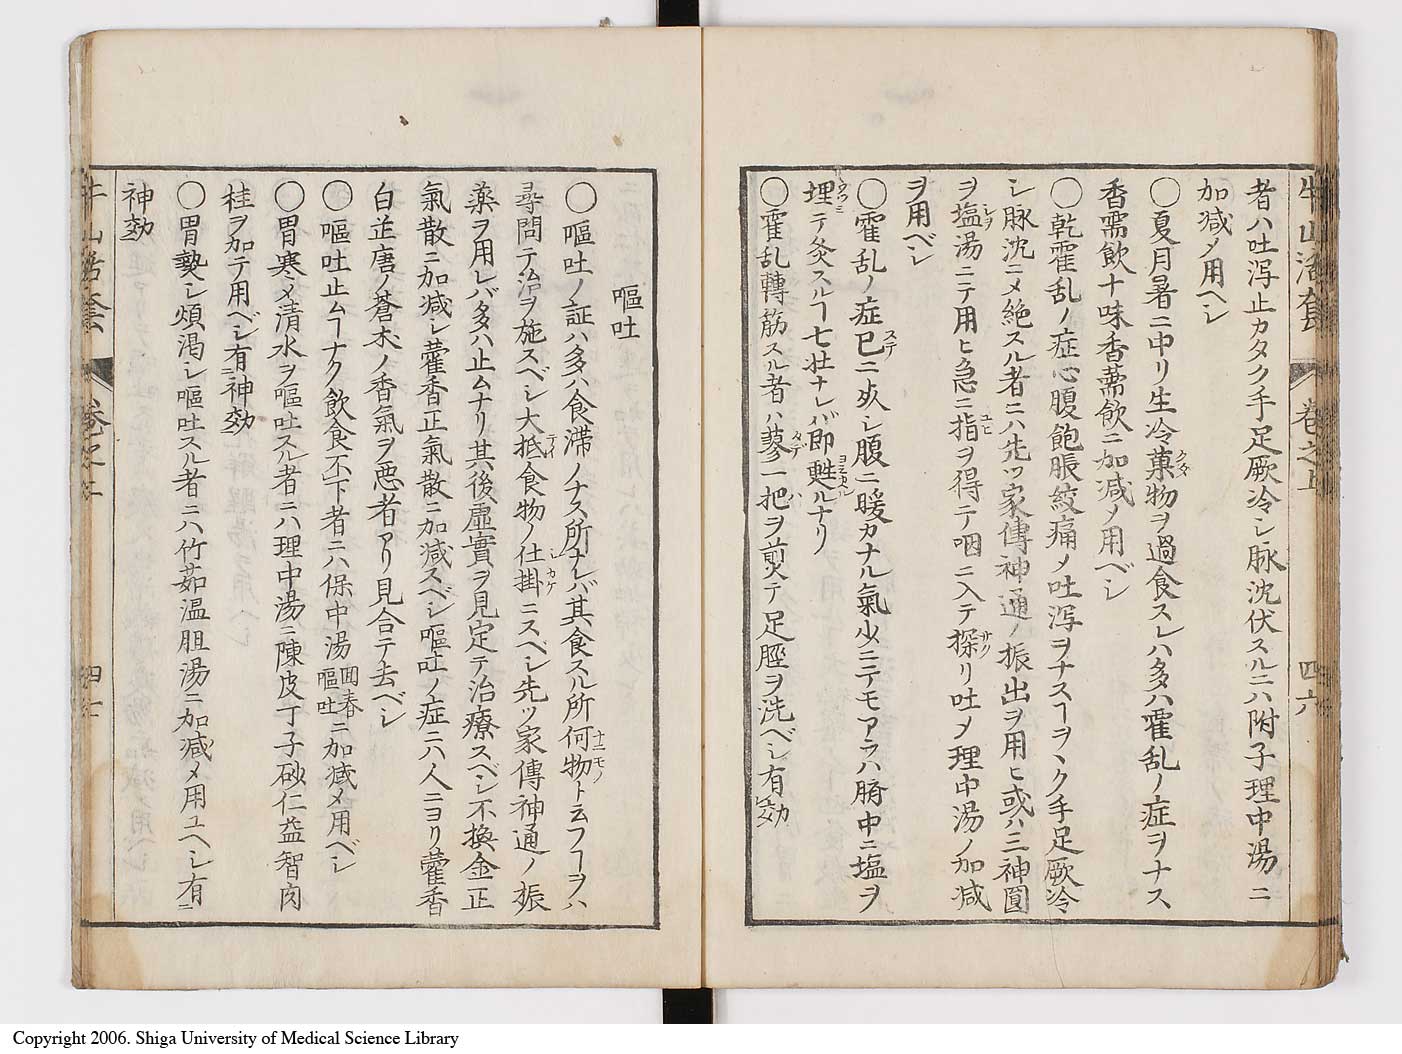 牛山活套 卷之上 四六
者ハ吐瀉止カタク手足厥冷シ脉沈伏スルニハ附子理中湯ニ
加減メ用ヘシ
〇夏月暑ニ中リ生冷菓物ヲ過食スレハ多ハ霍乱ノ症ヲナス
香薷飲十味香薷飲ニ加減メ用ベシ
〇乾霍乱ノ症心腹飽脹絞痛メ吐瀉ヲナスヿヲヽク手足厥冷
シ脉沈ニメ絶スル者ニハ先ツ家傳神通ノ振出ヲ用ヒ或ハ三神圓
ヲ塩湯ニテ用ヒ急ニ指ヲ得テ咽ニ入テ探リ吐メ理中湯ノ加減
ヲ用ベシ
〇霍乱ノ症已ニ死シ腹一暖カナル氣少ニテモアラハ臍中ニ塩ヲ
埋テ灸スルヿ七壮ナレバ即甦ルナリ
〇霍乱轉筋スル者ハ蓼一把ヲ煎メテ足脛ヲ洗ベシ有効
嘔吐
〇嘔吐ノ証ハ多ハ食滞ノナス所ナレバ其食スル所何物ト云フヿヲハ
尋問テ治ヲ施スベシ大抵食物ノ仕掛ニスベシ先ツ家傳神通ノ振
薬ヲ用レバ多ハ止ムナリ其後虚實ヲ見定テ治療スベシ不換金正
氣散ニ加減シ藿香正氣散ニ加減スベシ嘔吐ノ症ニハ人ニヨリ藿香
白芷唐ノ蒼朮ノ香氣ヲ悪者アリ見合テ去ベシ
〇嘔吐止ムヿナク飲食不下者ニハ保中湯回春嘔吐ニ加減メ用ベシ
〇胃寒メ清水ヲ嘔吐スル者ニハ理中湯ニ陳皮丁子砂仁益智肉
桂ヲ加テ用ベシ有神効
〇胃熱シ煩渇シ嘔吐スル者ニハ竹茹温胆湯ニ加減メ用ユヘシ有
神効
牛山活套 卷之上 四七